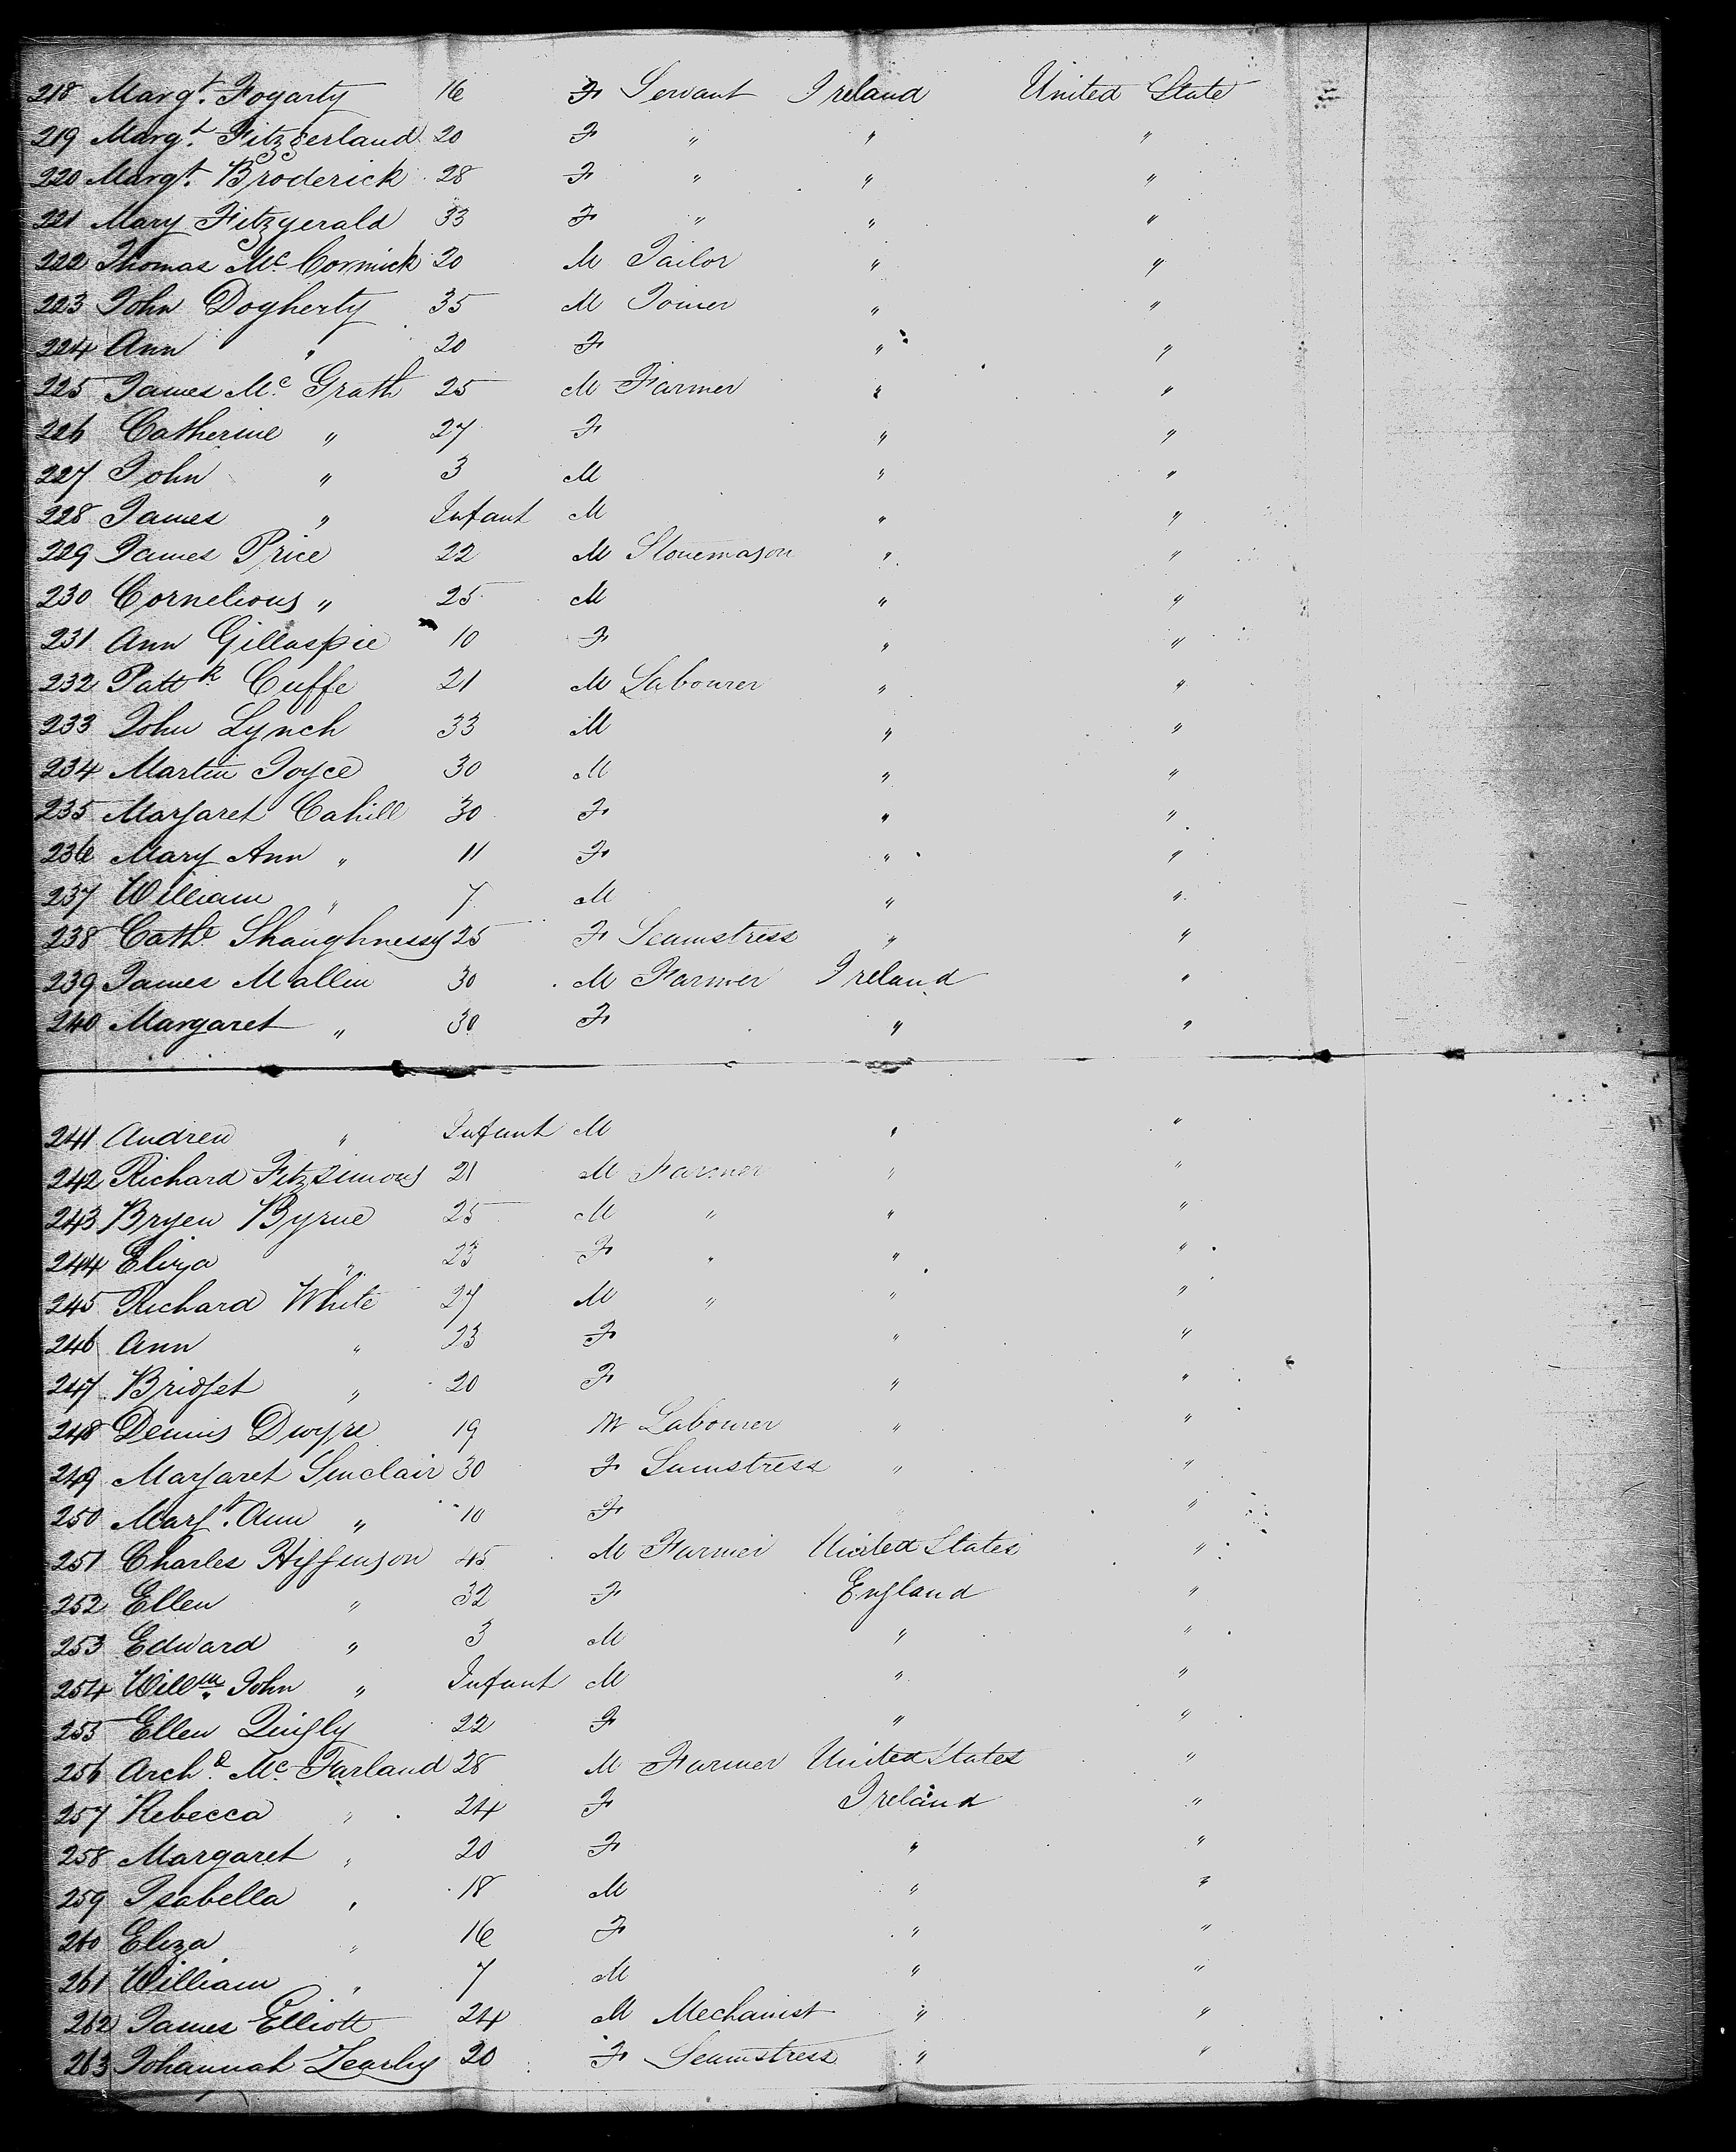 218 Margt. Fogarty 16 F Servant Ireland United State
219 Margt. Fitzgerland 20 F " " "
220 Margt. Broderick 28 F " " "
221 Mary Fitzgerald 33 F " " "
222 Thomas Mc. Cormick 20 M Tailor " "
223 John Dogherty 35 M Joiner " "
224 Ann " 20 F " "
225 James Mc. Grath 25 M Farmer " "
226 Catherine " 27 F " "
227 John " 3 M " "
228 James " Infant M " "
229 James Price 22 M Stonemason " "
230 Cornelious " 25 M " "
231 Ann Gillaspie 10 F " "
232 Pattk. Cuffe 21 M Labourer " "
233 John Lynch 33 M " "
234 Martin Joyce 30 M " "
235 Margaret Cahill 30 F " "
236 Mary Ann " 11 F " "
237 William " 7 M " "
238 Cathe Shaughnessy 25 F Seamstress " "
239 James Mallin 30 M Farmer Ireland "
240 Margaret " 30 F " "
241 Andrew " Infant M " "
242 Richard Fitzsimons 21 M Farmer " "
243 Bryen Byrne 25 M " " "
244 Eliza " 23 F " " "
245 Richard White 27 M " " "
246 Ann " 23 F " "
247 Bridget " 20 F " "
248 Dennis Dwyre 19 M Labourer " "
249 Margaret Sinclair 30 F Sumstress " "
250 Margt. Ann " 10 F "
251 Charles Higgenson 45 M Farmer United States "
252 Ellen " 32 F England "
253 Edward " 3 M " "
254 Willm. John " Infant M " "
255 Ellen Quigly 22 F " "
256 Archd. Mc. Farland 28 M Farmer United States "
257 Rebecca " 24 F Ireland "
258 Margaret " 20 F " "
259 Isabella " 18 M " "
260 Eliza " 16 F " "
261 William " 7 M " "
262 James Elliott 24 M Mechanist " "
263 Johannah 20 F Seamstress " "